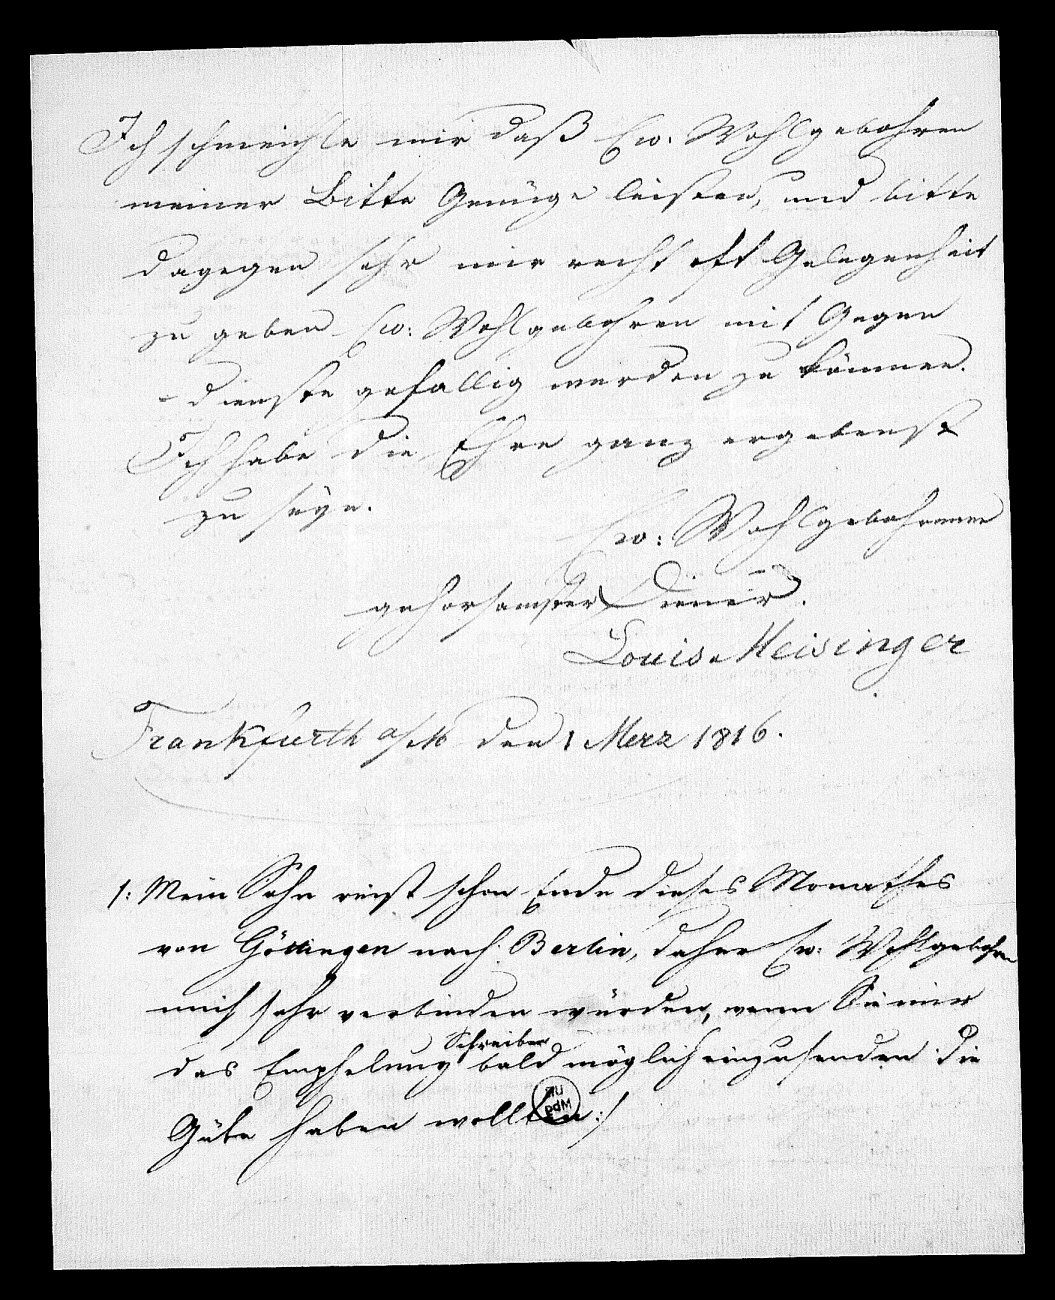 Ich schmeichle mir daß Ew: Wohlgebohren
meiner Bitte Genüge leisten, und bitte
dagegen sehr mir recht oft Gelegenheit
zu geben Ew: Wohlgebohren mit Gegen
dienste gefällig werden zu können.
Ich habe die Ehre ganz ergebenst
zu seyn.
Ew: Wohlgebohrnen
gehorsamster Diener.
Louis Meisinger
Frankfurth a/M den 1 Merz 1816.
/: Mein Sohn reist schon Ende dieses Monathes
von Göttingen nach Berlin, daher Ew: Wohlgebohrn
mich sehr verbinden würden, wenn Sie mir
das Empfelung Schreiben bald möglich einzusenden die
Güte haben wollten :/